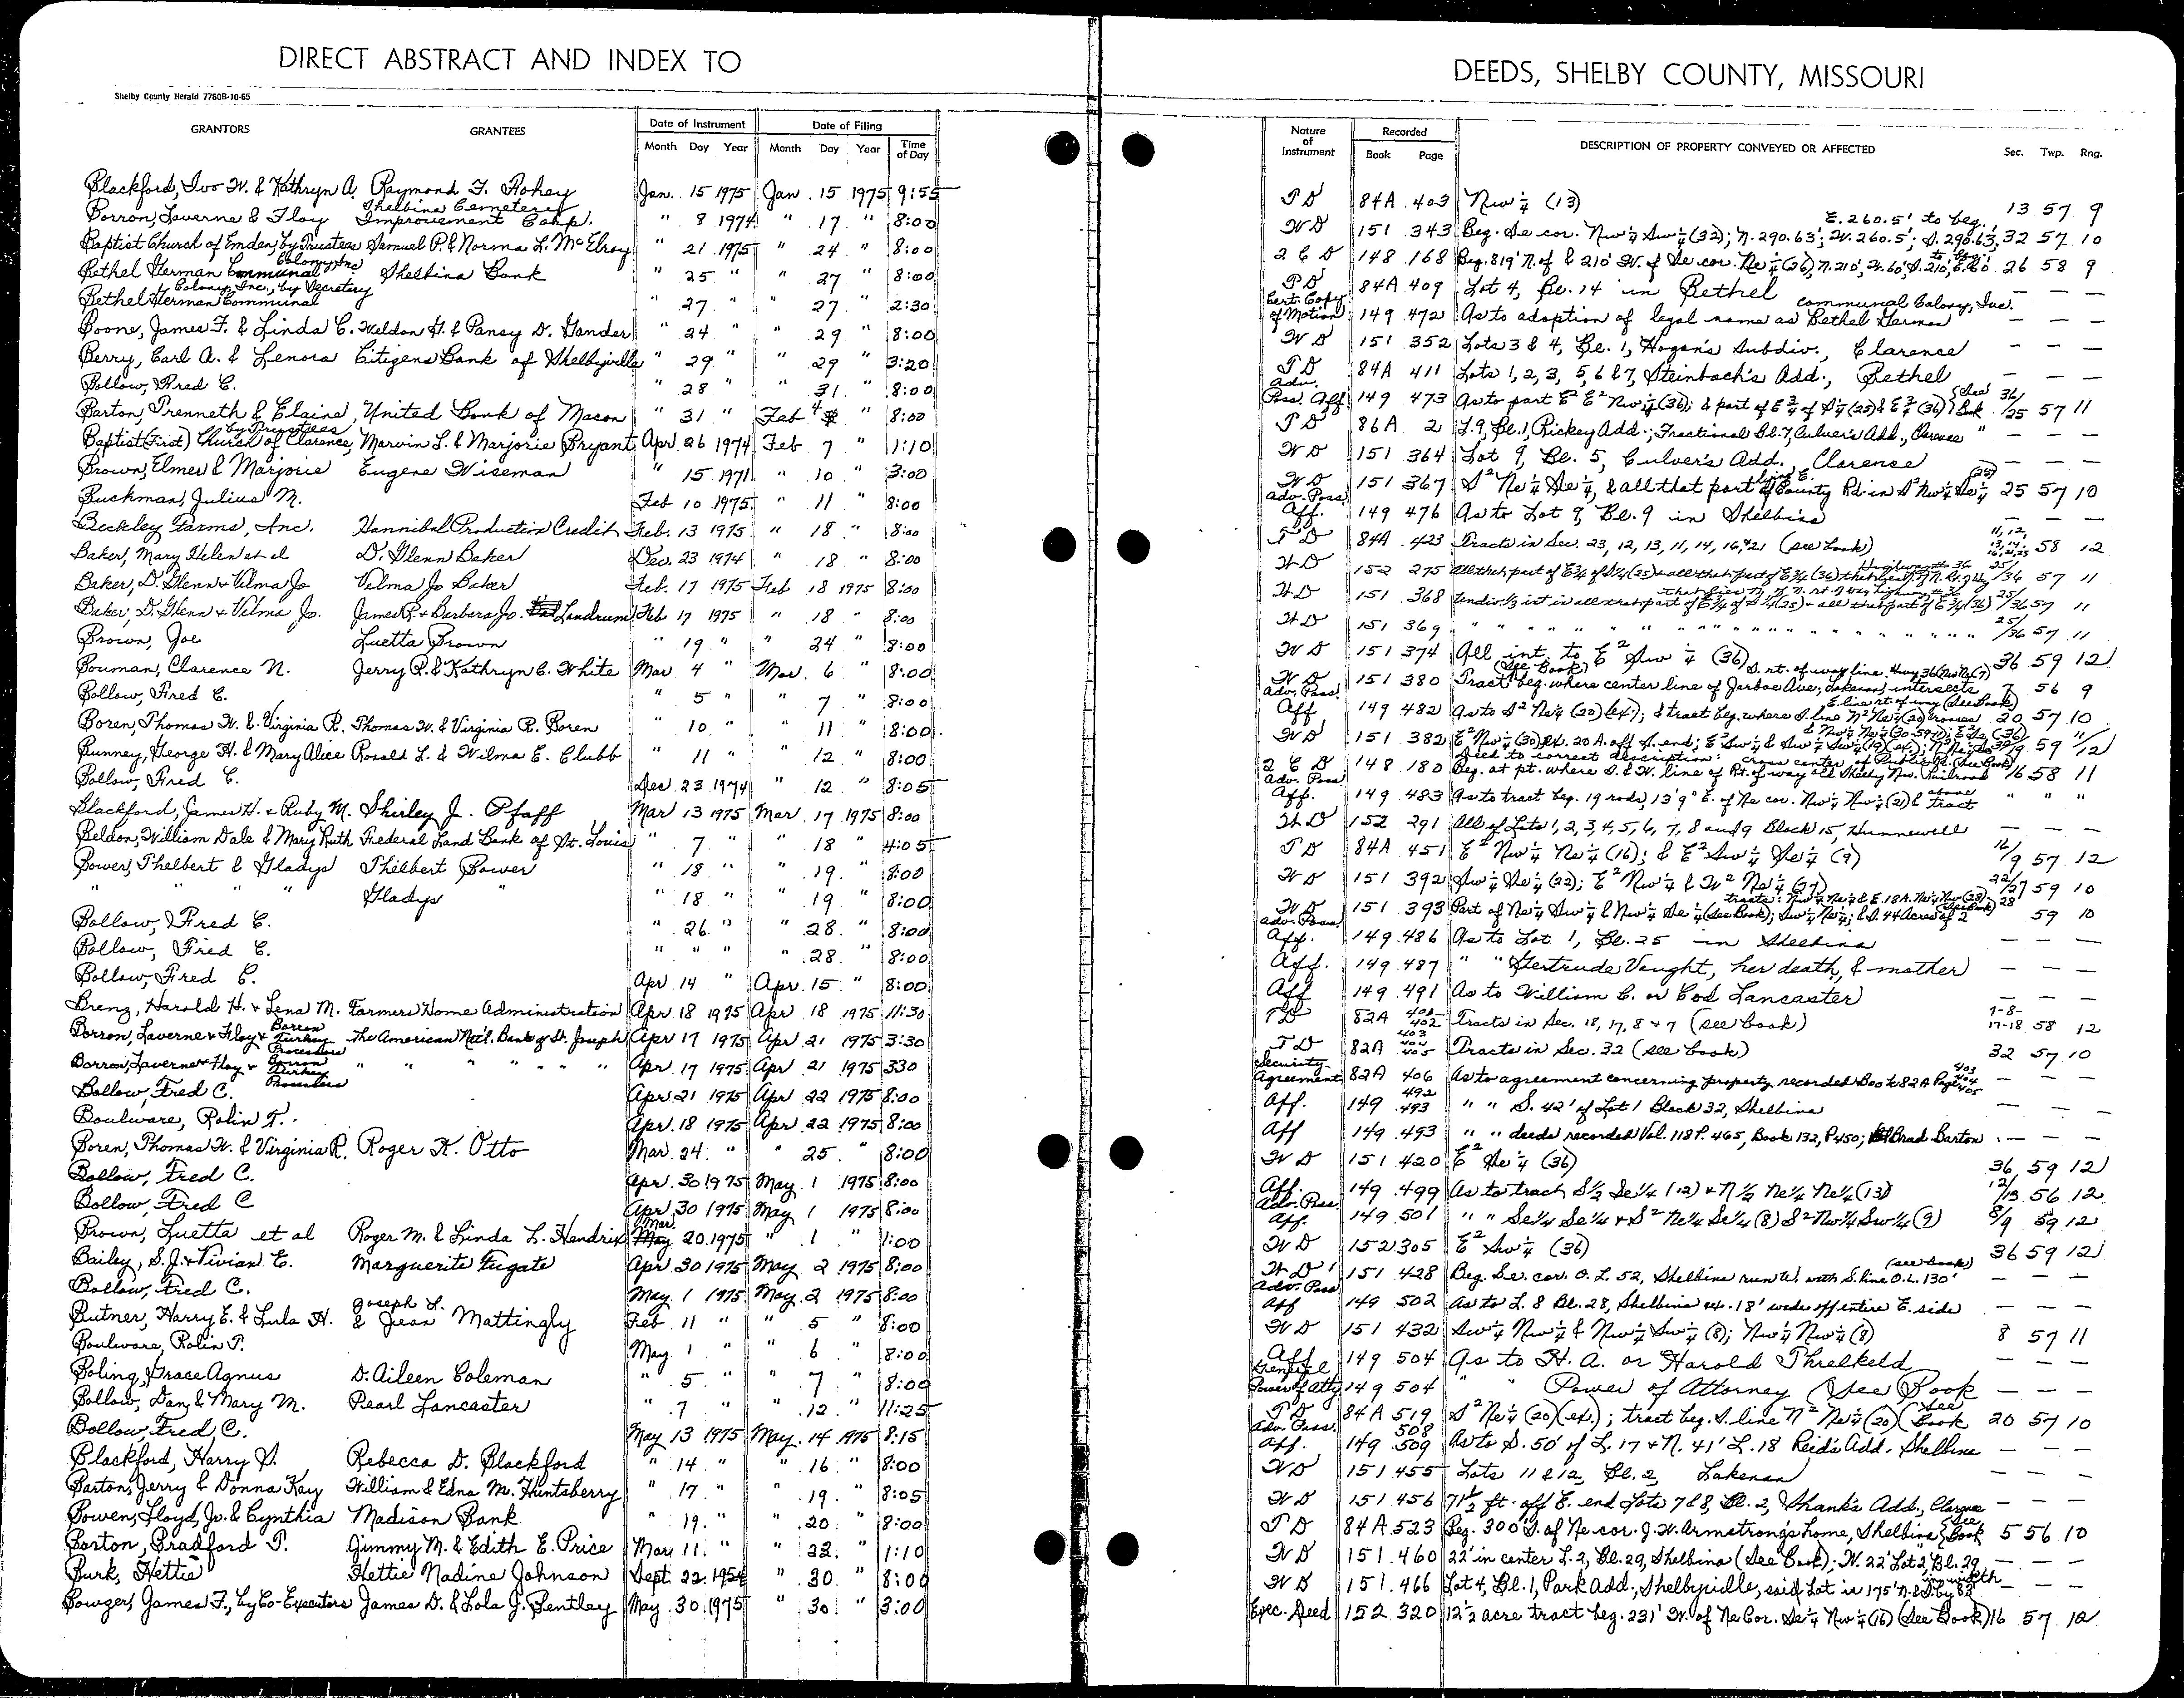 DIRECT ABSTRACT AND INDEX TO
Shelby County Herald 7780B-10-65
GRANTORS GRANTEES Date of Instrument Date of Filing
Month Day Year Month Day Year Time of Day
Blackford, Ivo W. & Kathryn A. Raymond F. Hohey Jan. 15 1975 Jan. 15 1975 9:55
Borron, Laverne & Floy Shelbina Cemetery Improvement Corp. " 8 1974 " 17 " 8:00
Baptist Church of Emden, by Trustees Samuel P. & Norma L. McElroy " 21 1975 " 24 " 8:00
Bethel German Communal Colony Inc Shelbina Bank " 25 " " 27 " 8:00
Bethel German Communal Colony, Inc., by Secretary " 27 " " 27 " 2:30
Boone, James F. & Linda C. Weldon H. & Pansy D. Gander " 24 " " 29 " 8:00
Berry, Carl A. & Lenora Citizens Bank of Shelbyville " 29 " " 29 " 3:20
Bollow, Fred C. " 28 " " 31 " 8:00
Barton, Trenneth & Elaine, United Bank of Macon " 31 " Feb 4 " 8:00
Baptist (First) Church of Clarence, by Trustees Marvin L. & Marjorie Bryant Apr 26 1974 Feb 7 " 1:10
Brown, Elmer & Marjorie Eugene Wiseman " 15 1971 " 10 " 3:00
Buckman, Julius M. Feb 10 1975 " 11 " 8:00
Beckley Farms, Inc. Hannibal Production Credit Feb. 13 1975 " 18 " 8:00
Baker, Mary Helen et al D. Glenn Baker Dec. 23 1974 " 18 " 8:00
Baker, D. Glenn & Vilma Jo Velma Jo Baker Feb. 17 1975 Feb 18 1975 8:00
Baker, D. Glenn & Velma Jo. James R. & Barbara Jo. Landrum Feb 17 1975 " 18 " 8:00
Brown, Joe Luetta Brown " 19 " " 24 " 8:00
Bouman, Clarence N. Jerry R. & Kathryn C. White Mar 4 " Mar. 6 " 8:00
Bollow, Fred C. " 5 " " 7 " 8:00
Boren, Thomas W. & Virginia R. Thomas W. & Virginia R. Boren " 10 " " 11 " 8:00
Bunney, George H. & Mary Alice Ronald L. & Wilma E. Chubb " 11 " " 12 " 8:00
Bollow, Fred C. Dec. 23 1974 " 12 " 8:05
Blackford, James H. & Ruby M. Shirley J. Pfaff Mar 13 1975 Mar. 17 1975 8:00
Beldon, William Dale & Mary Ruth Federal Land Bank of St. Louis " 7 " " 18 " 4:05
Bower, Thelbert & Gladys Thelbert Bower " 18 " " 19 " 8:00
" " " " Gladys " " 18 " " 19 " 8:00
Bollow, Fred C. " 26 " " 28 " 8:00
Bollow, Fred C. " " " " 28 " 8:00
Bollow, Fred C. Apr 14 " Apr. 15 " 8:00
Brenz, Harold H. & Lena M. Farmers Home Administration Apr 18 1975 Apr 18 1975 11:30
Borron, Laverne & Floy & Borron Turkey Processors The American Nat'l. Bank of St. Joseph Apr 17 1975 Apr 21 1975 3:30
Borron, Laverne & Floy & Borron Turkey Processors " " " " " " Apr 17 1975 Apr 21 1975 330
Bollow, Fred C. Apr 21 1975 Apr 22 1975 8:00
Boulware, Rolin T. Apr. 18 1975 Apr 22 1975 8:00
Boren, Thomas W. & Virginia R. Roger K. Otto Mar. 24 " " 25 " 8:00
Bollow, Fred C. Apr. 30 1975 May 1 1975 8:00
Bollow, Fred C Apr 30 1975 May 1 1975 8:00
Brown, Luetta et al Roger M. & Linda L. Hendrix Mar. 20 1975 " 1 " 1:00
Bailey, S.J. & Vivian E. Marguerite Fugate Apr 30 1975 May 2 1975 8:00
Bollow, Fred C. May 1 1975 May 2 1975 8:00
Butner, Harry E. & Lula H. Joseph L. & Jean Mattingly Feb. 11 " " 5 " 8:00
Boulware, Rolin T. May 1 " " 6 " 8:00
Boling, Grace Agnus D. Aileen Coleman " 5 " " 7 " 8:00
Bollow, Dan & Mary M. Pearl Lancaster " 7 " " 12 " 11:25
Bollow, Fred C. May 13 1975 May 14 1975 8:15
Blackford, Harry P. Rebecca D. Blackford " 14 " " 16 " 8:00
Barton, Jerry & Donna Kay William & Edna M. Huntsberry " 17 " " 19 " 8:05
Bowen, Floyd, Jr. & Cynthia Madison Bank " 19 " " 20 " 8:00
Barton, Bradford T. Jimmy M. & Edith E. Price Mar 11 " " 22 " 1:10
Burk, Hettie Hettie Nadine Johnson Sept. 22 1954 " 30 " 8:00
Bowzer, James F., by Co-Executors James D. & Lola J. Bentley May 30 1975 " 30 " 3:00
DEEDS, SHELBY COUNTY, MISSOURI
Nature of Instrument Recorded DESCRIPTION OF PROPERTY CONVEYED OR AFFECTED Sec. Twp. Rng.
Book Page
T D 84A 403 Nw ¼ (13) 13 57 9
W D 151 343 Beg. Se cor. Nw ¼ Sw ¼ (32); N. 290.63'; W. 260.5'; S. 290.63; E. 260.5' to beg. 32 57 10
2 C D 148 168 Beg. 819' N. of & 210' W. of Se cor. Ne ¼ (36), N. 210', W. 60', S. 210', E. 60' to beg. 26 58 9
T D 84A 409 Lot 4, Bl. 14 in Bethel — — —
Cert. Copy of Motion 149 472 As to adoption of legal name as Bethel German communal Colony, Inc. — — —
W D 151 352 Lots 3 & 4, Bl. 1, Hogan's Subdiv., Clarence — — —
T D 84A 411 Lots 1, 2, 3, 5, 6 & 7, Steinbach's Add., Bethel — — —
Adv. Poss. Aff 149 473 As to part E² E² Nw ¼ (36); & part of E ¾ of S ¼ (25) & E ¾ (36) (See Book) 36/25 57 11
T D 86A 2 L. 9, Bl. 1, Rickey Add.; Fractional Bl. 7, Culver's Add., Clarence — — —
W D 151 364 Lot 9, Bl. 5, Culver's Add., Clarence — — —
W D 151 367 S² Ne ¼ Se ¼, & all that part lying E. of County Rd. in S² Nw ¼ Se ¼ (25) 25 57 10
Adv. Poss. Aff. 149 476 As to Lot 9, Bl. 9 in Shelbina — — —
T D 84A 423 Tracts in Sec. 23, 12, 13, 11, 14, 16, & 21 (see book) 58 12
W D 152 275 All that part of E ¾ of S ¼ (25) & all that part of E ¾ (36) 25/36 57 11
W D 151 368 Undiv. ⅓ int in all that part of E ¾ of S ¼ (25) & all that part of E ¾ (36) 25/36 57 11
W D 151 369 " " " " " " " " " " " " 25/36 57 11
W D 151 374 All int. to E² Sw ¼ (36) 36 59 12
W D 151 380 Tract beg. where center line of Jarboe Ave, Lakenan, intersects S. rt. of way line Hwy 36 (See Book) 7 56 9
Adv. Poss. Aff 149 482 As to S² Ne ¼ (20) (ex); & tract beg. where S. line N² Ne ¼ (20) crosses E. line rt. of way (See Book) 20 57 10
W D 151 382 E² Nw ¼ (30) ex. 20 A. off S. end; E² Sw ¼ & Sw ¼ Sw ¼ (19) (ex.); 59 11/12
2 C D 148 180 Deed to correct description: Beg. at pt. where S. & W. line of Rt. of way old Shelby Nw. Railroad cross center of Public Rd. (See Book) 16 58 11
Adv. Poss. Aff. 149 483 As to tract beg. 19 rods, 13' 9" E. of Ne cor. Nw ¼ Nw ¼ (21) & above tract " " "
W D 152 291 All of Lots 1, 2, 3, 4, 5, 6, 7, 8 and 9 Block 15, Hunnewell — — —
T D 84A 451 E² Nw ¼ Ne ¼ (16); & E² Sw ¼ Se ¼ (9) 16/9 57 12
W D 151 392 Sw ¼ Se ¼ (22); E² Nw ¼ & W² Ne ¼ (27) 22/27 59 10
W D 151 393 Part of Ne ¼ Sw ¼ & Nw ¼ Se ¼ (see Book); Sw ¼ Ne ¼; & S. 44 Acres of 2 tracts: Nw ¼ Ne ¼ & E. 18 A. Ne ¼ Nw ¼ (28) (See Book) 28 59 10
Adv. Poss. Aff. 149 486 As to Lot 1, Bl. 25 in Shelbina — — —
Aff. 149 487 " " Gertrude Vaught, her death, & mother — — —
Aff 149 491 As to William C. or Cod Lancaster — — —
T D 82A 401 402 Tracts in Sec. 18, 17, 8 & 7 (see book) 7-8-17-18 58 12
T D 82A 403 404 405 Tracts in Sec. 32 (see book) 32 57 10
Security Agreement 82A 406 As to agreement concerning property recorded Book 82A Page 403 404 405 — — —
Aff. 149 492 493 " " S. 42' of Lot 1 Block 32, Shelbina — — —
Aff 149 493 " " deeds recorded Vol. 118 P. 465, Book 132, P 450; Brad Barton — — —
W D 151 420 E² Se ¼ (36) 36 59 12
Aff. 149 499 As to tract S½ Se ¼ (12) & N ½ Ne ¼ Ne ¼ (13) 12/13 56 12
Adv. Poss. Aff. 149 501 " " Se ¼ Se ¼ & S² Ne ¼ Se ¼ (8) S² Nw ¼ Sw ¼ (9) 8/9 59 12
W D 152 305 E² Sw ¼ (36) 36 59 12
W D 151 428 Beg. Se. cor. O. L. 52, Shelbina run W. with S. line O.L. 130' (see book) — — —
Adv. Poss Aff 149 502 As to L. 8 Bl. 28, Shelbina ex. 18' wide off entire E. side — — —
W D 151 432 Sw ¼ Nw ¼ & Nw ¼ Sw ¼ (8); Nw ¼ Nw ¼ (8) 8 57 11
Aff 149 504 As to H. A. or Harold Threlkeld — — —
General Power of Atty 149 504 " " Power of Attorney (See Book — — —
T D 84A 519 S² Ne ¼ (20) (ex.); tract beg. S. line N² Ne ¼ (20) (See Book 20 57 10
Adv. Poss. Aff. 149 508 509 As to S. 50' of L. 17 & N. 41' L. 18 Reid's Add. Shelbina — — —
W D 151 455 Lots 11 & 12, Bl. 2, Lakenan — — —
W D 151 456 71½ ft. off E. end Lots 7 & 8, Bl. 2, Shank's Add., Clarence — — —
T D 84A 523 Beg. 300' S. of Ne cor. J. W. Armstrong's home, Shelbina (See Book 5 56 10
W D 151 460 22' in center L. 2, Bl. 29, Shelbina (See Book); W. 22' Lot 2, Bl. 29 — — —
W D 151 466 Lot 4, Bl. 1, Park Add., Shelbyville, said Lot is 175' N. & S. by 82' in width — — —
Exec. Deed 152 320 12½ acre tract beg. 231' W. of Ne Cor. Se ¼ Nw ¼ (16) (See Book) 16 57 12